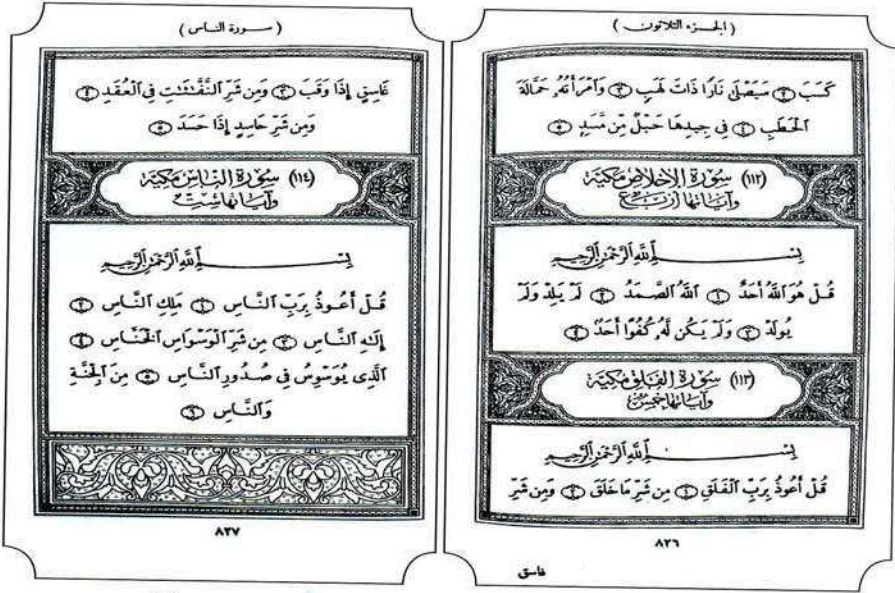 (الجزء الثلاثون)
كَسَبَ ٢ سَيَصْلَىٰ نَارًا ذَاتَ لَهَبٍ ٣ وَٱمْرَأَتُهُۥ حَمَّالَةَ
ٱلْحَطَبِ ٤ فِي جِيدِهَا حَبْلٌ مِّن مَّسَدٍ ٥
(١١٢) سورة الإخلاص مكية
وآياتها أربع
بِسْمِ ٱللَّهِ ٱلرَّحْمَٰنِ ٱلرَّحِيمِ
قُلْ هُوَ ٱللَّهُ أَحَدٌ ١ ٱللَّهُ ٱلصَّمَدُ ٢ لَمْ يَلِدْ وَلَمْ
يُولَدْ ٣ وَلَمْ يَكُن لَّهُۥ كُفُوًا أَحَدٌ ٤
(١١٣) سورة الفلق مكية
وآياتها خمس
بِسْمِ ٱللَّهِ ٱلرَّحْمَٰنِ ٱلرَّحِيمِ
قُلْ أَعُوذُ بِرَبِّ ٱلْفَلَقِ ١ مِن شَرِّ مَا خَلَقَ ٢ وَمِن شَرِّ
٨٢٦
غاسق
(سورة الناس)
غَاسِقٍ إِذَا وَقَبَ ٣ وَمِن شَرِّ ٱلنَّفَّٰثَٰتِ فِي ٱلْعُقَدِ ٤
وَمِن شَرِّ حَاسِدٍ إِذَا حَسَدَ ٥
(١١٤) سورة الناس مكية
وآياتها ست
بِسْمِ ٱللَّهِ ٱلرَّحْمَٰنِ ٱلرَّحِيمِ
قُلْ أَعُوذُ بِرَبِّ ٱلنَّاسِ ١ مَلِكِ ٱلنَّاسِ ٢
إِلَٰهِ ٱلنَّاسِ ٣ مِن شَرِّ ٱلْوَسْوَاسِ ٱلْخَنَّاسِ ٤
ٱلَّذِي يُوَسْوِسُ فِي صُدُورِ ٱلنَّاسِ ٥ مِنَ ٱلْجِنَّةِ
وَٱلنَّاسِ ٦
٨٢٧